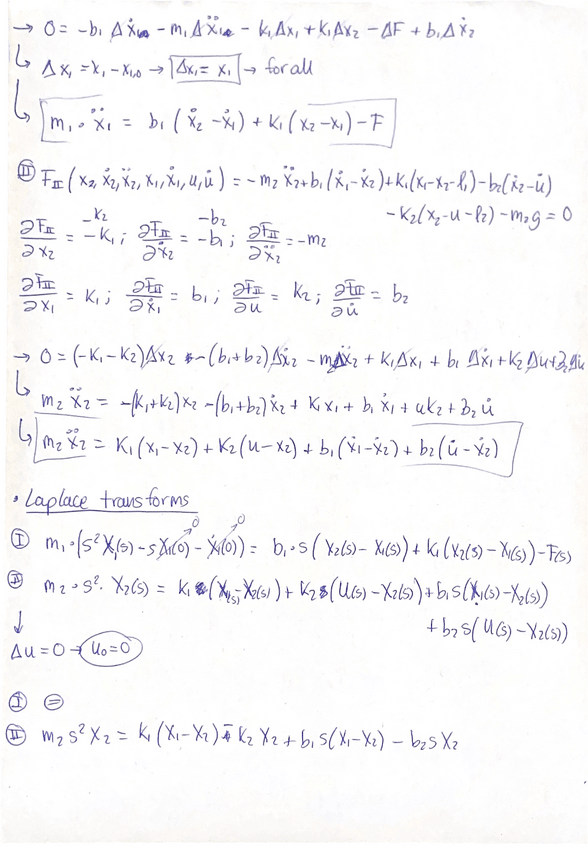 → 0 = -b₁ Δẋ₁ - m₁ Δẍ₁ - k₁Δx₁ + k₁Δx₂ - ΔF + b₁Δẋ₂
↳ Δx₁ = x₁ - x₁,₀ → Δx₁ = x₁ → for all
↳ m₁ · ẍ₁ = b₁ (ẋ₂ - ẋ₁) + k₁(x₂ - x₁) - F
Ⅱ F_Ⅱ (x₂, ẋ₂, ẍ₂, x₁, ẋ₁, u, u̇) = -m₂ẍ₂ + b₁(ẋ₁ - ẋ₂) + k₁(x₁ - x₂ - l₁) - b₂(ẋ₂ - u̇)
- k₂(x₂ - u - l₂) - m₂g = 0
-k₂ -b₂
∂F_Ⅱ/∂x₂ = -k₁ ; ∂F_Ⅱ/∂ẋ₂ = -b₁ ; ∂F_Ⅱ/∂ẍ₂ = -m₂
∂F_Ⅱ/∂x₁ = k₁ ; ∂F_Ⅱ/∂ẋ₁ = b₁ ; ∂F_Ⅱ/∂u = k₂ ; ∂F_Ⅱ/∂u̇ = b₂
→ 0 = (-k₁ - k₂)Δx₂ - (b₁ + b₂)Δẋ₂ - m₂Δẍ₂ + k₁Δx₁ + b₁ Δẋ₁ + k₂Δu + b₂Δu̇
↳ m₂ ẍ₂ = -(k₁ + k₂)x₂ - (b₁ + b₂)ẋ₂ + k₁x₁ + b₁ẋ₁ + uk₂ + b₂u̇
↳ m₂ẍ₂ = k₁(x₁ - x₂) + k₂(u - x₂) + b₁(ẋ₁ - ẋ₂) + b₂(u̇ - ẋ₂)
• Laplace transforms
0 0
Ⅰ m₁ · (s²X₁(s) - sX₁(0) - Ẋ₁(0)) = b₁ · s(X₂(s) - X₁(s)) + k₁(X₂(s) - X₁(s)) - F(s)
Ⅱ m₂ · s² · X₂(s) = k₁(X₁(s) - X₂(s)) + k₂(U(s) - X₂(s)) + b₁s(X₁(s) - X₂(s))
+ b₂s(U(s) - X₂(s))
↓
Δu = 0 → u₀ = 0
Ⅰ =
Ⅱ m₂s²X₂ = k₁(X₁ - X₂) - k₂X₂ + b₁s(X₁ - X₂) - b₂sX₂